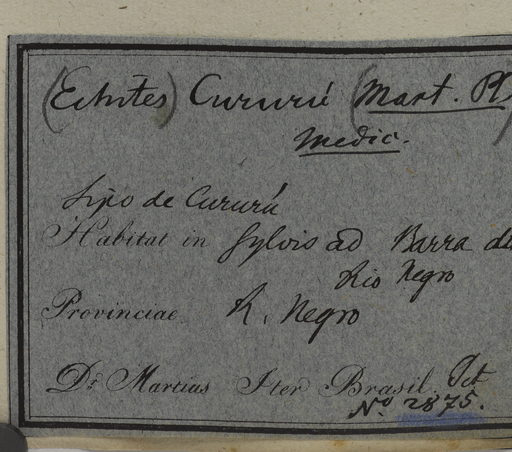 (Echites) Cururú (Mart. Pl
Medic.
Sipo de Cururú
Habitat in Sylvis ad Barra do
Rio Negro
Provinciae R. Negro
Dr. Martius Iter Brasil. Oct
No 2875.